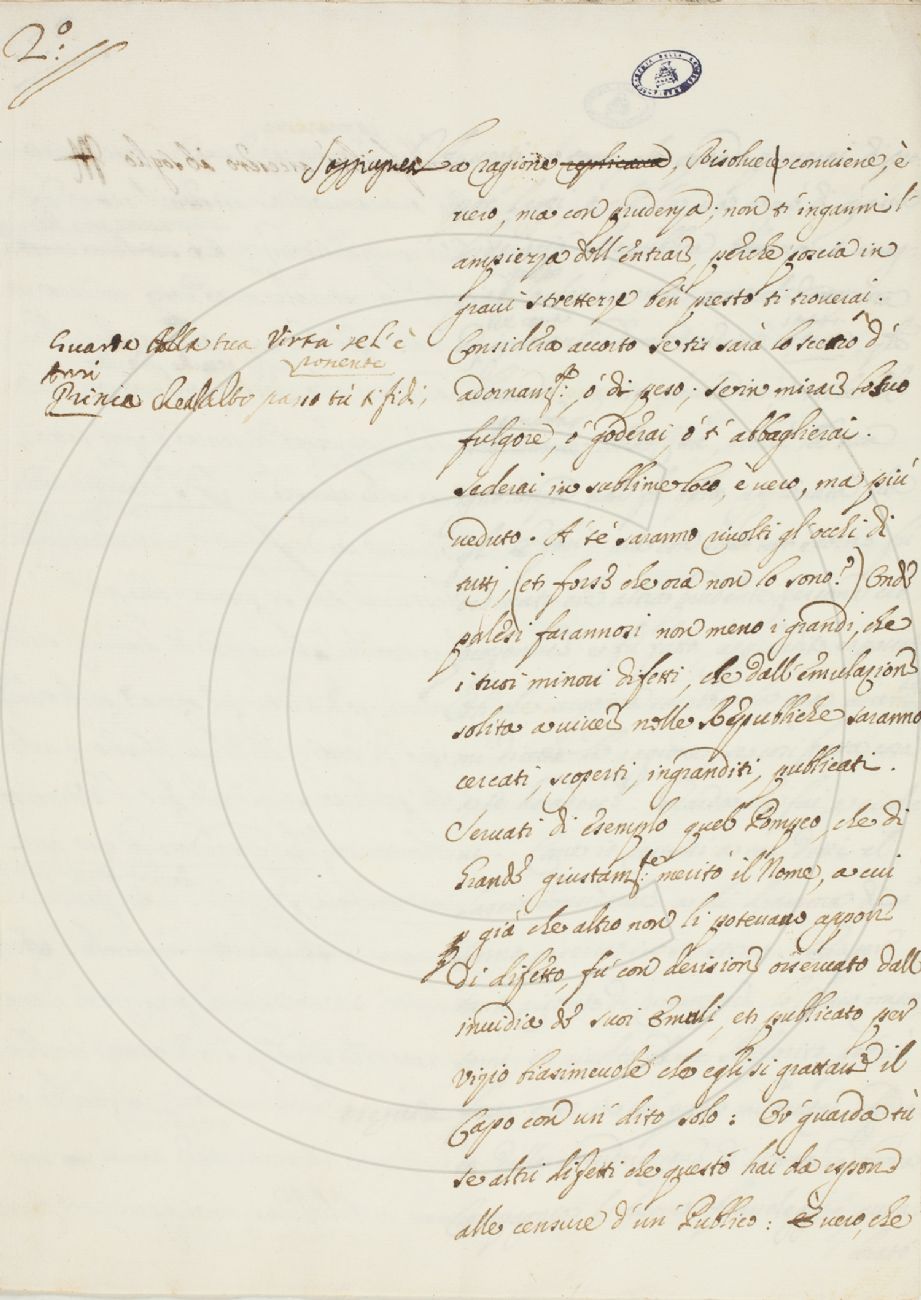 2.º
Soggiugnea La ragione replicava, Risolvere conviene, è
vero, ma con prudenza; non t'inganni l'
ampiezza dell'entrare, perche poscia in
gravi strettezze ben presto ti troverai.
Considera accorto se ti sarà lo scettro d'
adornam.to, ó di peso; se in mirare lo suo
fulgore, ó goderai, ó t'abbaglierai.
Sederai in sublime loco, è vero, ma più
veduto. A' té saranno rivolti gl'occhi di
tutti, (et forse che ora non lo sono?) Onde
palesi farannosi non meno i grandi, che
i tuoi minori difetti, che dall'emulazione
solita a vivere nelle Republiche saranno
cercati, scoperti, ingranditi, publicati.
Servati di esempio quel Pompeo, che di
Grande giustam.te meritò il Nome, a cui
già che altro non li potevano apporre
di difetto, fú con derisione osservato dall'
invidia de suoi Emuli, et publicato per
vizio biasimevole che egli si grattasse il
Capo con un' dito solo: Or' guarda tù
se altri difetti che questo hai da esporre
alle censure d'un' Publico: è vero, che
Guarda della tua Virtù se l'è
ponente
Prinia tù ti fidi,